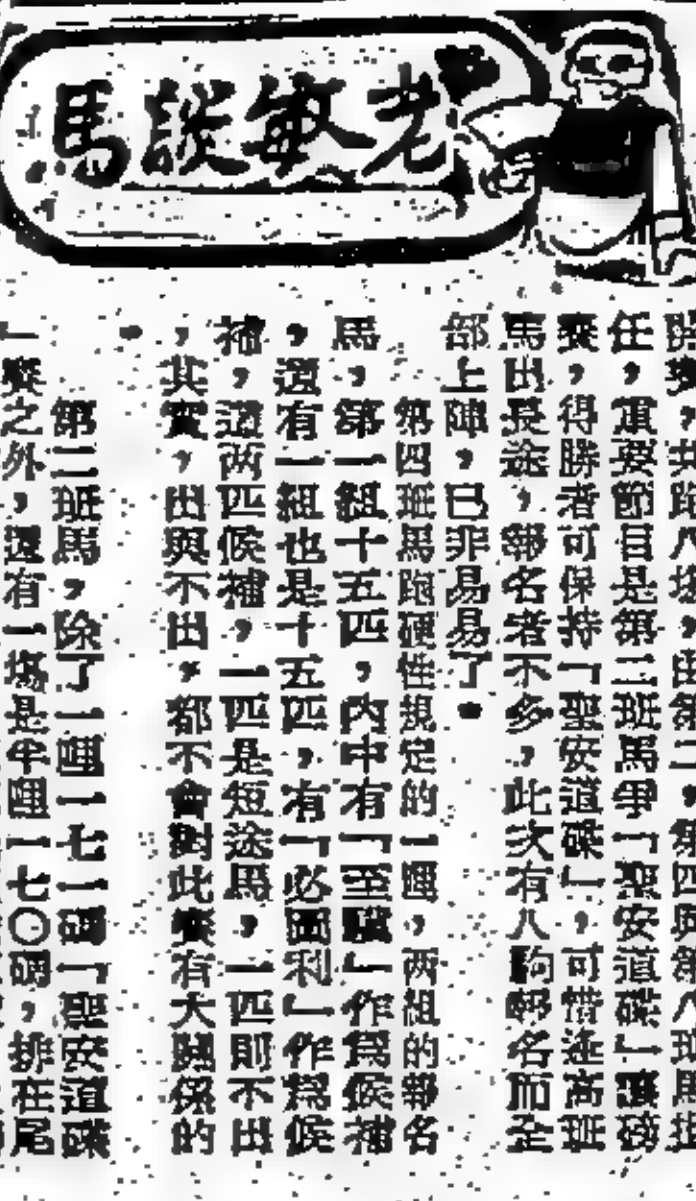 老敏談馬
開賽，共跑八場，由第二，第四與第八班馬担
任，重要節目是第二班馬爭「聖安道碟」讓磅
賽，得勝者可保持「聖安道碟」，可惜逢高班
馬出長途，報名者不多，此次有八駒報名而全
部上陣，已非易易了。
第四班馬跑硬性規定的一哩，两組的報名
馬，第一組十五匹，內中有「至驥」作爲候補
，還有一組也是十五匹，有「必圖利」作爲候
補，這两匹候補，一匹是短途馬，一匹則不出
，其實，出與不出，都不會對此賽有大關係的
。
第二班馬，除了一哩一七一碼「聖安道碟
一賽之外，還有一場是半哩一七〇碼，排在尾